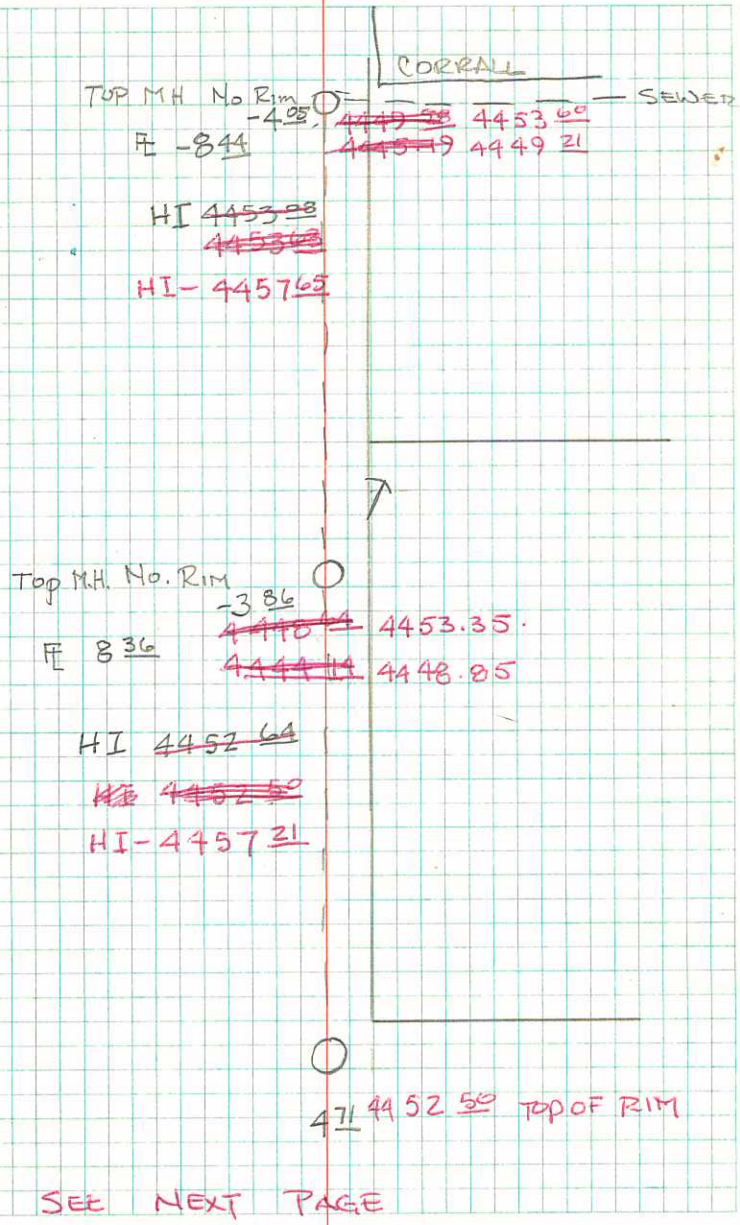 CORRALL
TOP MH No Rim — SEWER
-4 05 4449 28 4453 60
FL -8 44 4445 49 4449 21
HI 4453 08
4453 63
HI- 4457 65
Top M.H. No. RIM
-3 86
4448 44 4453.35.
FL 8 36
4444 14 4448.85
HI 4452 64
HI 4452 50
HI- 4457 21
4 71 4452 50 TOP OF RIM
SEE NEXT PAGE